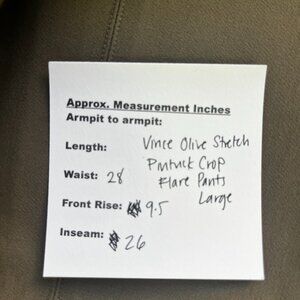 Approx. Measurement Inches
Armpit to armpit:
Length: Vince Olive Stretch
Waist: 28 Pintuck Crop
Flare Pants
Front Rise: 9.5 Large
Inseam: 26